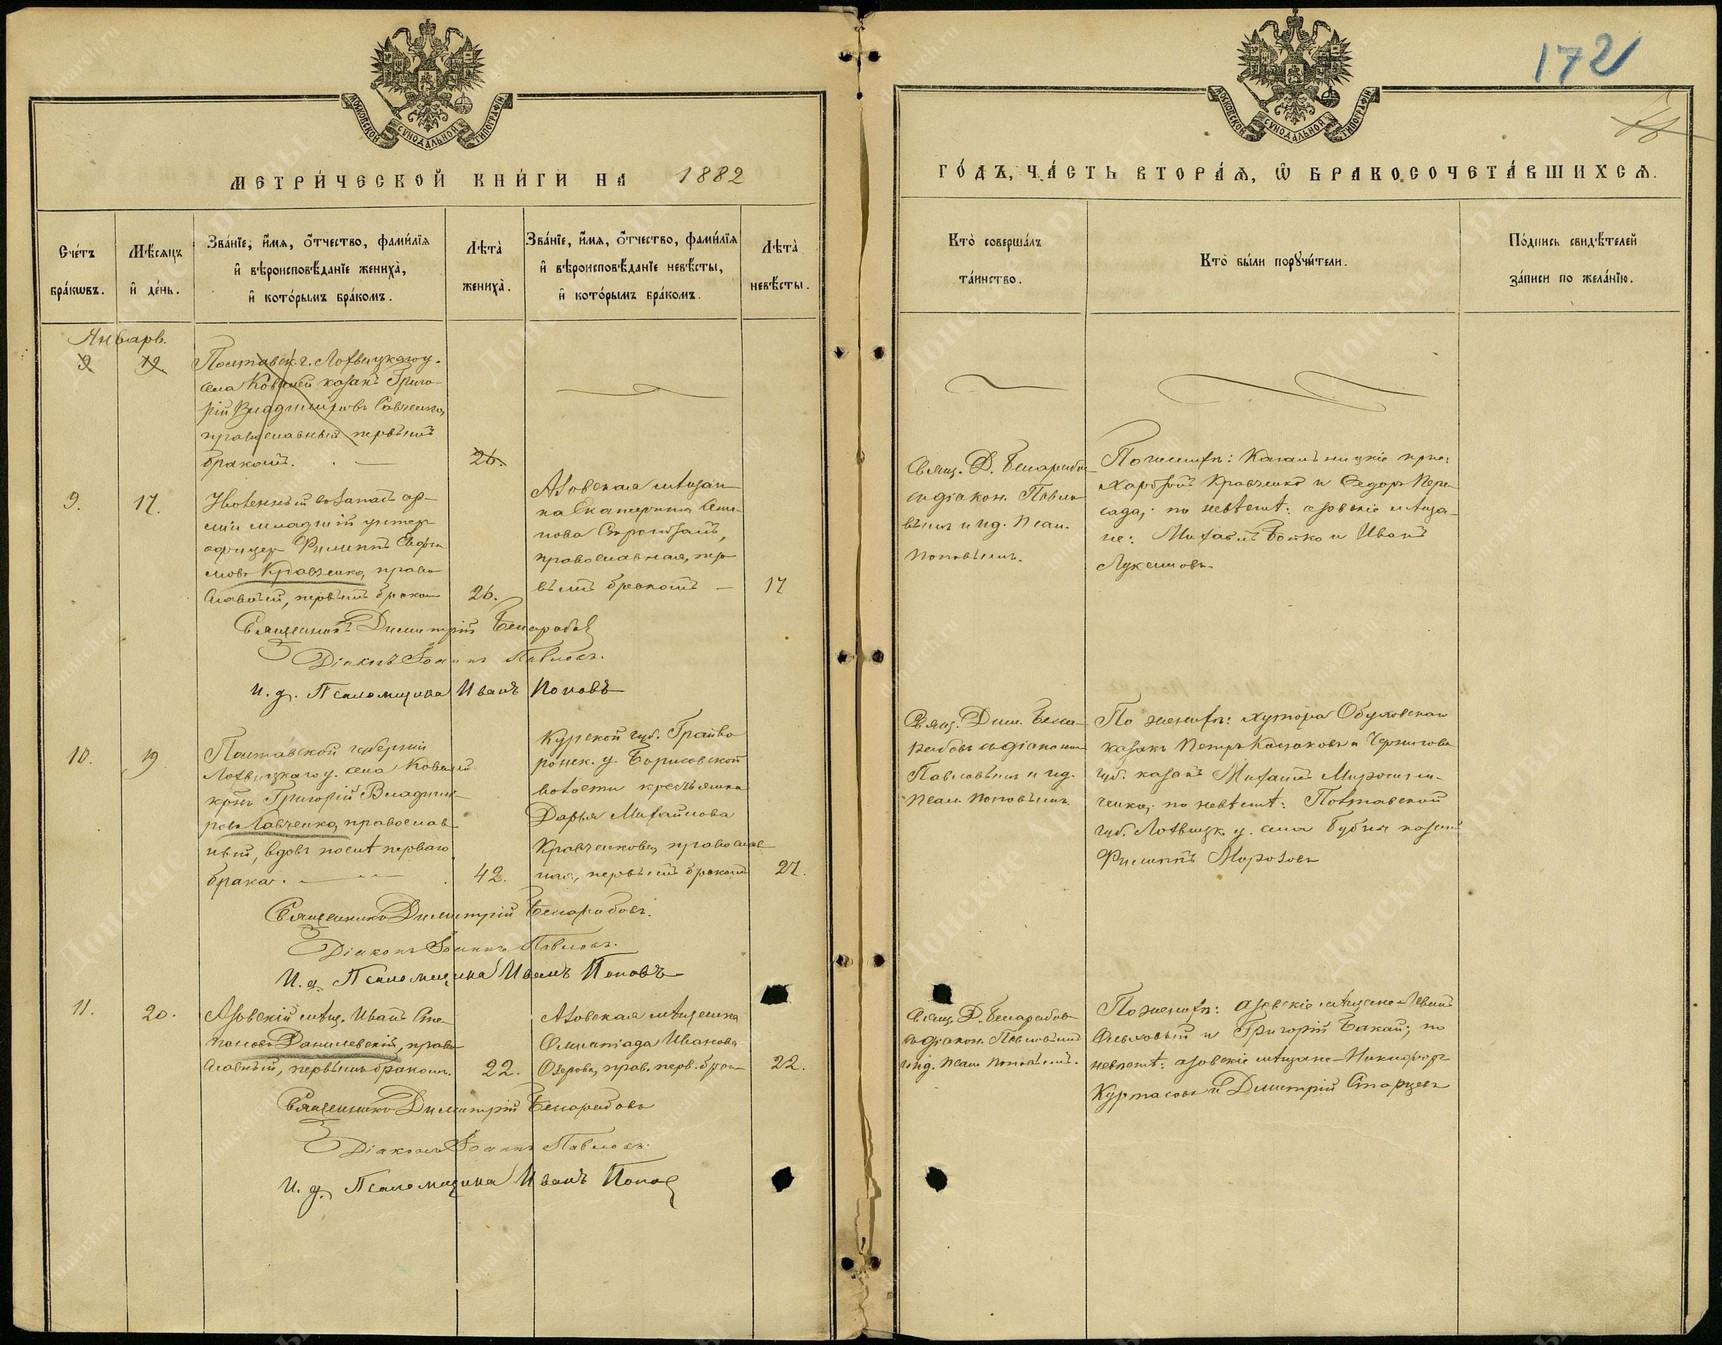 172
МОСКОВСКОЙ СѴНОДАЛЬНОЙ ТИПОГРАФІИ
МОСКОВСКОЙ СѴНОДАЛЬНОЙ ТИПОГРАФІИ
МЕТРИ́ЧЕСКОЙ КНИ́ГИ НА 1882
ГО́ДЪ, ЧА́СТЬ ВТОРА́Я, Ѡ БРАКОСОЧЕТА́ВШИХСЯ.
Сче́тъ бра́кѡвъ.
Мѣ́сяцъ и҆ де́нь.
Зва́нїе, и҆́мя, ѻ҆́тчество, фами́лїя
и҆ вѣроисповѣ́данїе жениха̀,
и҆ кото́рымъ бра́комъ.
Лѣта̀ жениха̀.
Зва́нїе, и҆́мя, ѻ҆́тчество, фами́лїя
и҆ вѣроисповѣ́данїе невѣ́сты,
и҆ кото́рымъ бра́комъ.
Лѣта̀ невѣ́сты.
Кто̀ соверша́лъ
та́инство.
Кто̀ бы́ли порꙋчи́тели.
По́дпись свидѣ́телей
за́писи по жела́нїю.
Январь.
9 12
Полтавск. г. Лохвицкаго у.
села Ковалей казакъ Григо-
рій Владиміровъ Савченко,
православный первымъ
бракомъ.
26.
9. 17.
младшій унтеръ
офицеръ Филиппъ
Кравченко, право-
славный, первымъ бракомъ
26.
Азовская мѣщан-
ка Екатерина
православная, пер-
вымъ бракомъ
17
Свящ. Д.
и діакон. Павло-
вымъ и и.д. псал.
Поповымъ.
По женихѣ:
Кравченко и Федоръ
по невѣстѣ: азовскіе мѣща-
не: Михаилъ Бойко и Иванъ
Священникъ Димитрій
Діаконъ Іоаннъ Павловъ.
И. д. Псаломщика Иванъ Поповъ
10. 19.
Полтавской губерніи
Лохвицкаго у. села Ковалей
крнъ Григорій Владимі-
ровъ Савченко, православ-
ный, вдовъ послѣ перваго
брака.
42.
Курской губ. Грайво-
ронск. у. Борисовской
волости крестьянка
Дарья Михайлова
Кравченкова, православ-
ная, первымъ бракомъ
27.
Свящ. Дим.
и діакономъ
Павловымъ и и.д.
псал. Поповымъ.
По женихѣ: хутора Обуховская
казакъ Петръ Казаковъ и Чернигов.
губ. казакъ Михаилъ Мирошни-
ченко, по невѣстѣ: Полтавской
губ. Лохвицк. у. села
Филиппъ Морозовъ
Священникъ Димитрій
Діаконъ Іоаннъ Павловъ.
И. д. Псаломщика Иванъ Поповъ
11. 20.
Азовскій мѣщ. Иванъ Сте-
пановъ Данилевскій, право-
славный, первымъ бракомъ.
22.
Азовская мѣщанка
Олимпіада Иванова
Озерова, прав. перв. брак.
22.
Свящ. Д.
и діакон. Павловымъ
и и.д. псал. Поповымъ.
По женихѣ: азовскіе мѣщане
и Григорій Бакай; по
невѣстѣ: азовскіе мѣщане Никифоръ
Куртасовъ и Димитрій Старцевъ
Священникъ Димитрій
Діаконъ Іоаннъ Павловъ.
И. д. Псаломщика Иванъ Поповъ